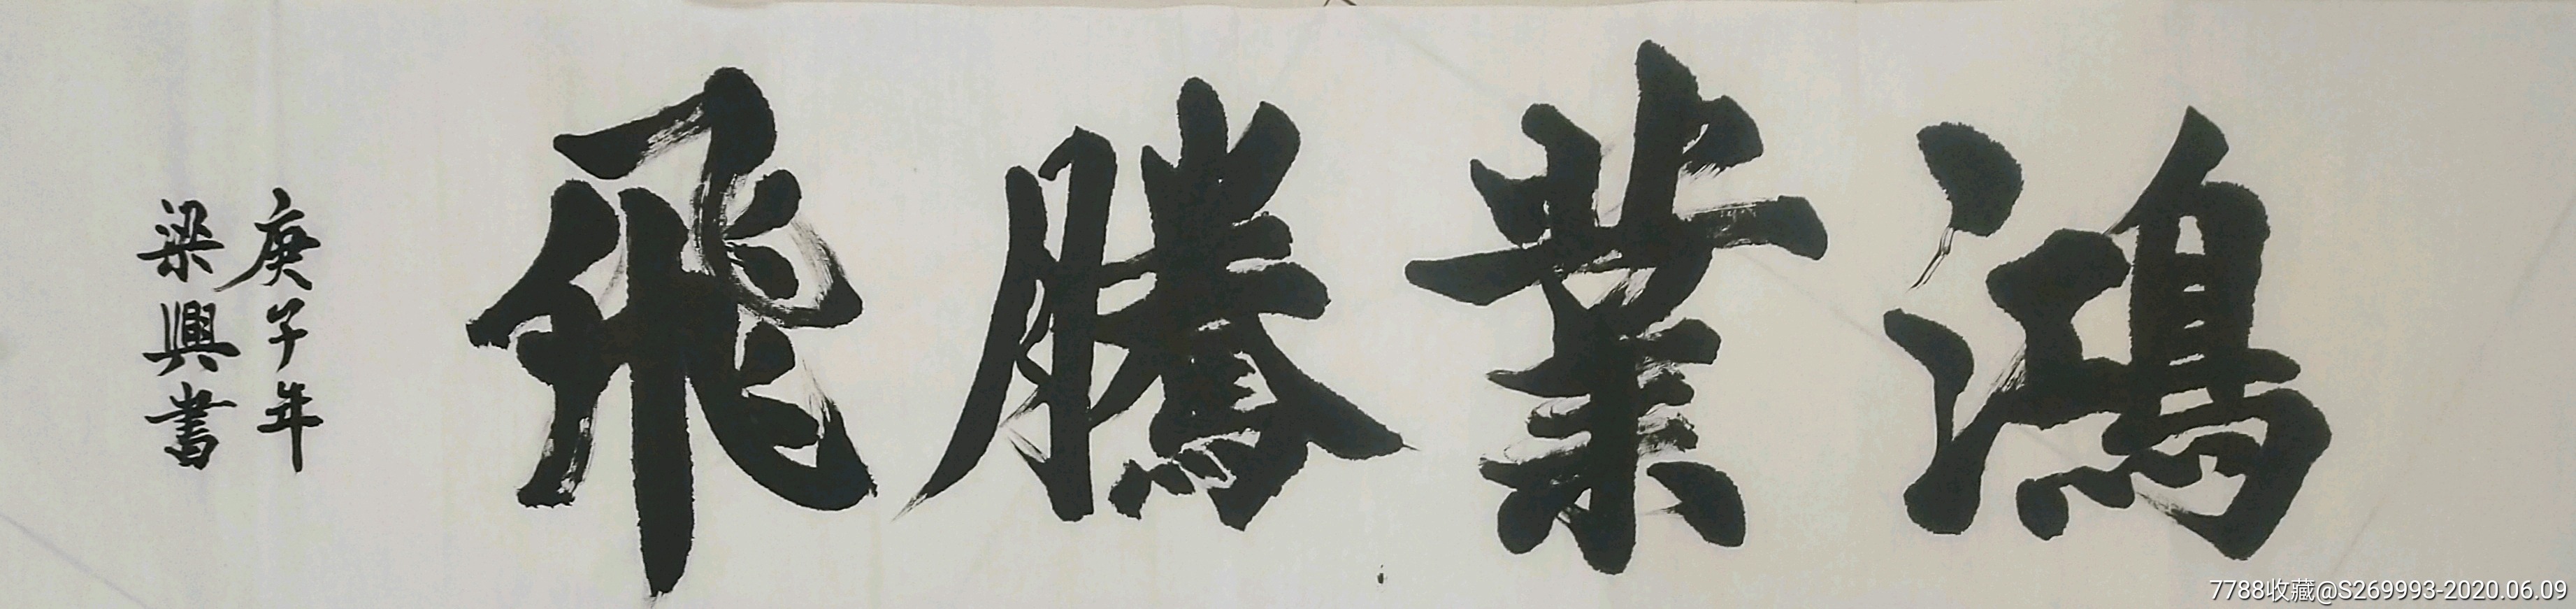 鴻業騰飛
庚子年
梁興書
7788收藏@S269993-2020.06.09